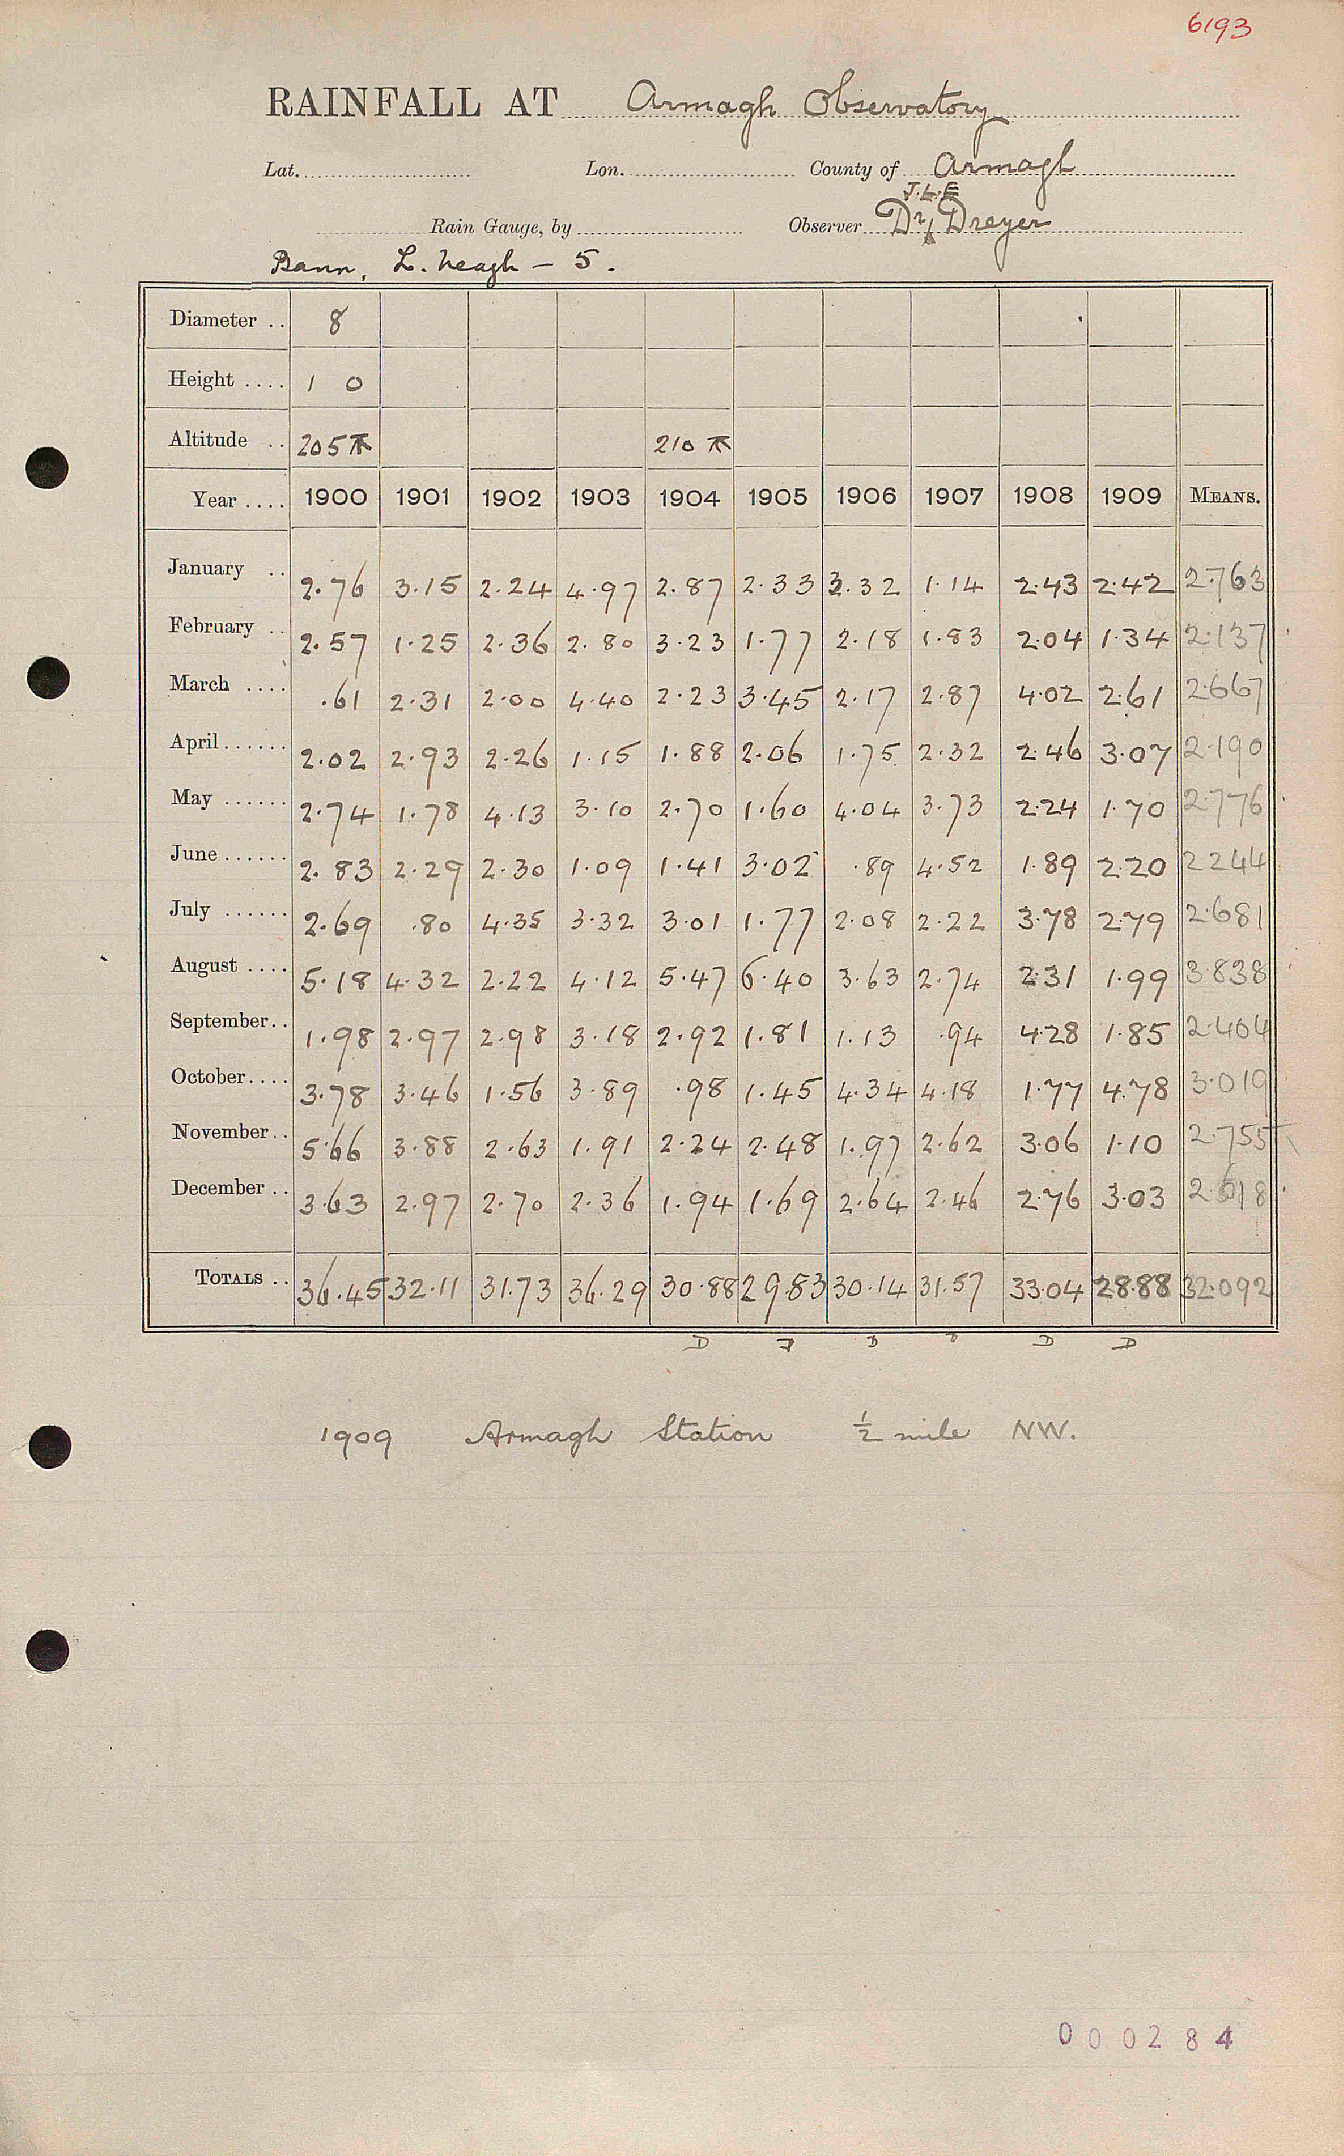 6193
RAINFALL AT Armagh Observatory
Lat. Lon. County of Armagh
J.L.E
Rain Gauge, by Observer Dr Dreyer
Bann, L. Neagh – 5.
Diameter .. 8
Height .... 1 0
Altitude .. 205 210
Year .... 1900 1901 1902 1903 1904 1905 1906 1907 1908 1909 MEANS.
January .. 2.76 3.15 2.24 4.97 2.87 2.33 3.32 1.14 2.43 2.42 2.763
February .. 2.57 1.25 2.36 2.80 3.23 1.77 2.18 1.83 2.04 1.34 2.137
March .... .61 2.31 2.00 4.40 2.23 3.45 2.17 2.87 4.02 2.61 2.667
April...... 2.02 2.93 2.26 1.15 1.88 2.06 1.75 2.32 2.46 3.07 2.190
May ...... 2.74 1.78 4.13 3.10 2.70 1.60 4.04 3.73 2.24 1.70 2.776
June ...... 2.83 2.29 2.30 1.09 1.41 3.02 .89 4.52 1.89 2.20 2.244
July ...... 2.69 .80 4.35 3.32 3.01 1.77 2.08 2.22 3.78 2.79 2.681
August .... 5.18 4.32 2.22 4.12 5.47 6.40 3.63 2.74 2.31 1.99 3.838
September.. 1.98 2.97 2.98 3.18 2.92 1.81 1.13 .94 4.28 1.85 2.404
October.... 3.78 3.46 1.56 3.89 .98 1.45 4.34 4.18 1.77 4.78 3.019
November.. 5.66 3.88 2.63 1.91 2.24 2.48 1.97 2.62 3.06 1.10 2.755
December .. 3.63 2.97 2.70 2.36 1.94 1.69 2.64 2.46 2.76 3.03 2.618
TOTALS .. 36.45 32.11 31.73 36.29 30.88 29.83 30.14 31.57 33.04 28.88 32.092
D D D D
1909 Armagh Station ½ mile NW.
000284